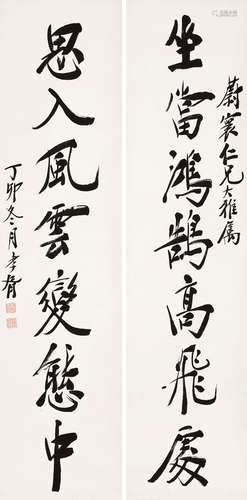 坐當鴻鵠高飛處
蔚寰仁兄大雅属
思入風雲變態中
丁卯冬月孝胥